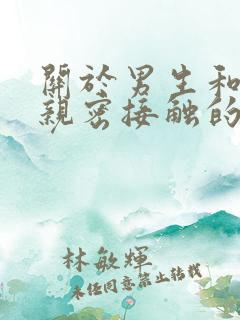 關於男生和
親密接觸的
林敏輝
未經同意禁止轉載